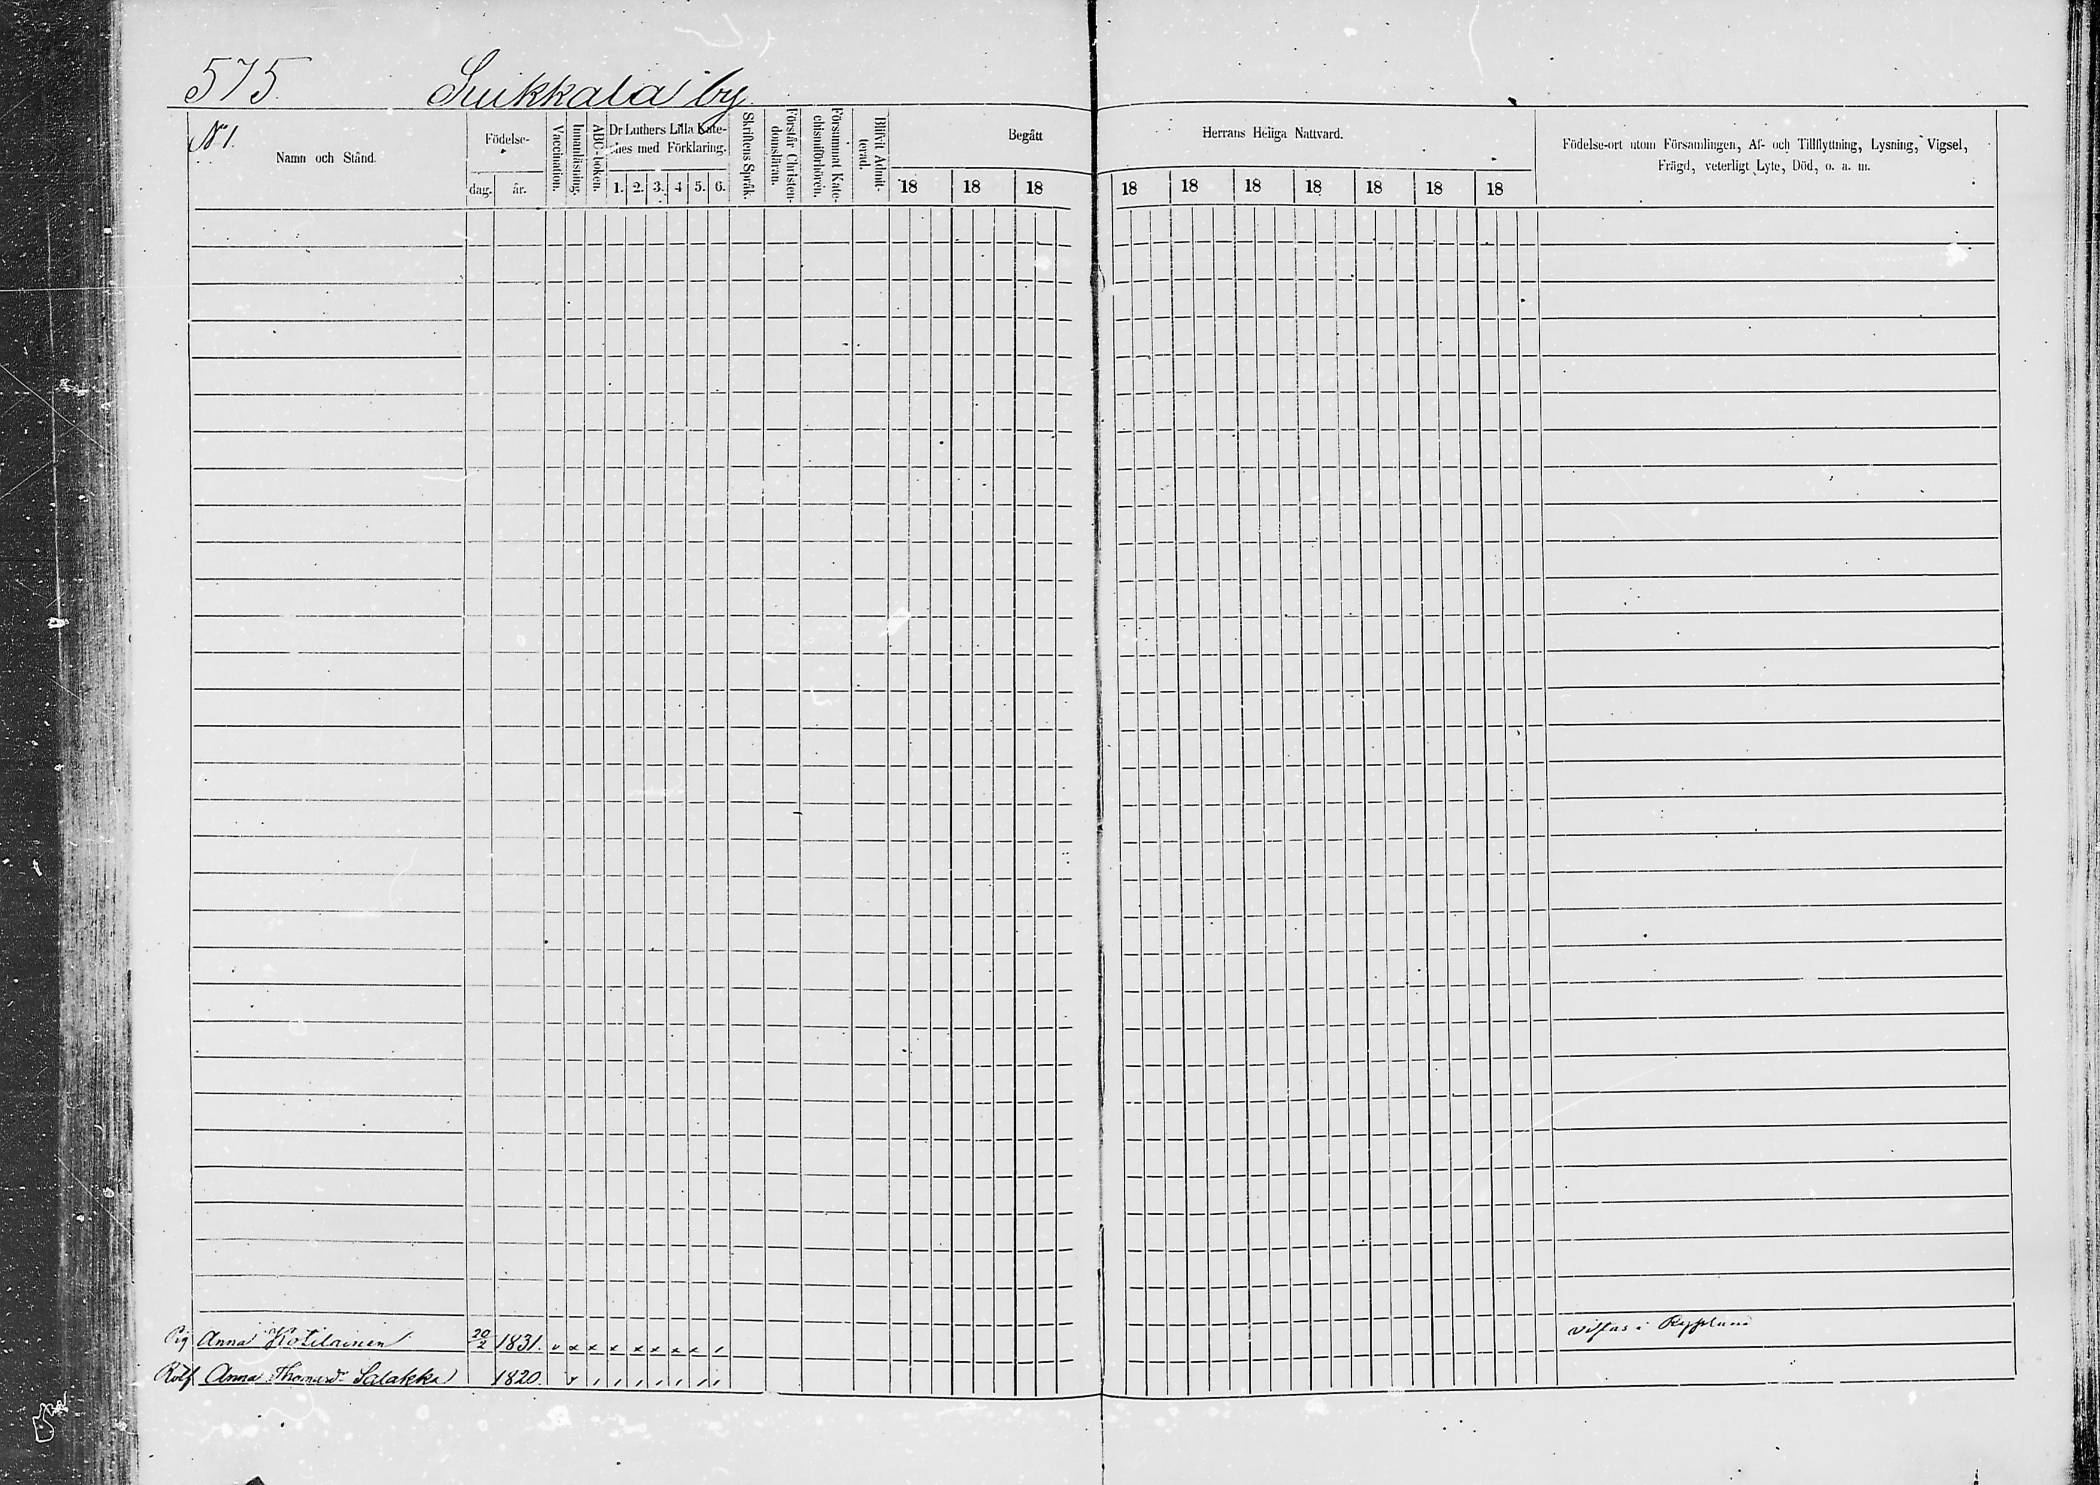 575. Suikkala by
N:o 1.
Namn och Stånd.
Födelse-
dag. år.
Vaccination.
Innanläsning.
ABC-boken.
Dr Luthers Lilla Kate-
ches med Förklaring.
1. 2. 3. 4 5. 6.
Skriftens Språk.
Förstår Christen-
domsläran.
Försummat Kate-
chismiförhören.
Blifvit Admit-
terad.
Begått
18 18 18
Herrans Heliga Nattvard.
18 18 18 18 18 18 18
Födelse-ort utom Församlingen, Af- och Tillflyttning, Lysning, Vigsel,
Frägd, veterligt Lyte, Död, o. a. m.
Pig Anna Kotilainen 20/2 1831. v x x x x x x x
Anna Thomasdr Salakka 1820